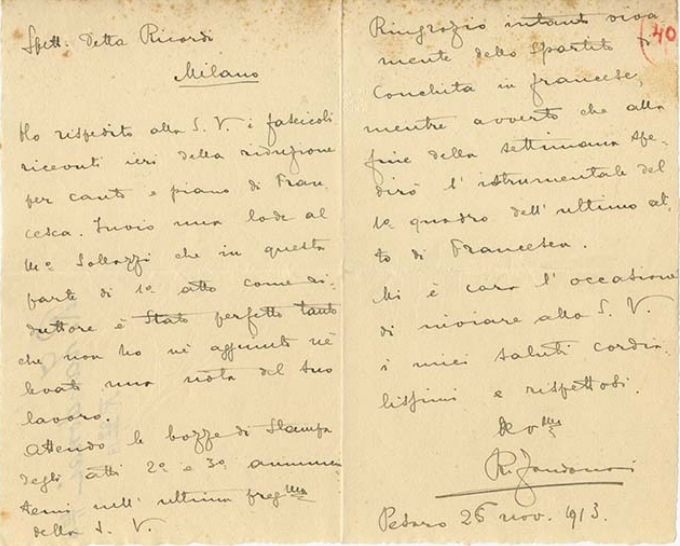 Spett. Ditta Ricordi
Milano
Ho rispedito alla S. V. i fascicoli
ricevuti ieri della riduzione
per canto e piano di Fran
cesca. Invio una lode al
Mº Solazzi che in questa
parte di 1º atto come ri-
duttore è stato perfetto tanto
che non ho nè aggiunto nè
levato una nota del suo
lavoro.
Attendo le bozze di stampa
degli atti 2º e 3º annun
temi nell' ultima preg.ma
della S. V.
40
Ringrazio intanto viva
mente dello spartito di
Conchita in francese,
mentre avverto che alla
fine della settimana spe-
dirò l' istrumentale del
1º quadro dell' ultimo at-
to di Francesca.
Mi è cara l' occasione
di inviare alla S. V.
i miei saluti cordia-
lissimi e rispettosi.
Devmo
R. Zandonai
Pesaro 26 nov. 1913.